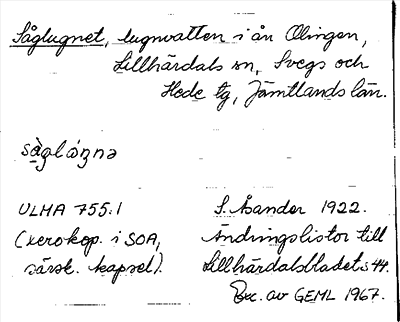 Såglugnet, lugnvatten i ån Olingen,
Lillhärdals sn, Svegs och
Hede tg, Jämtlands län.
såglóŋnə
ULMA 755:1 S. Åsander 1922.
(xerokop. i SOA, Ändringslistor till
särsk. kapsel). Lillhärdalsbladet s 44.
Exc. av GEML 1967.